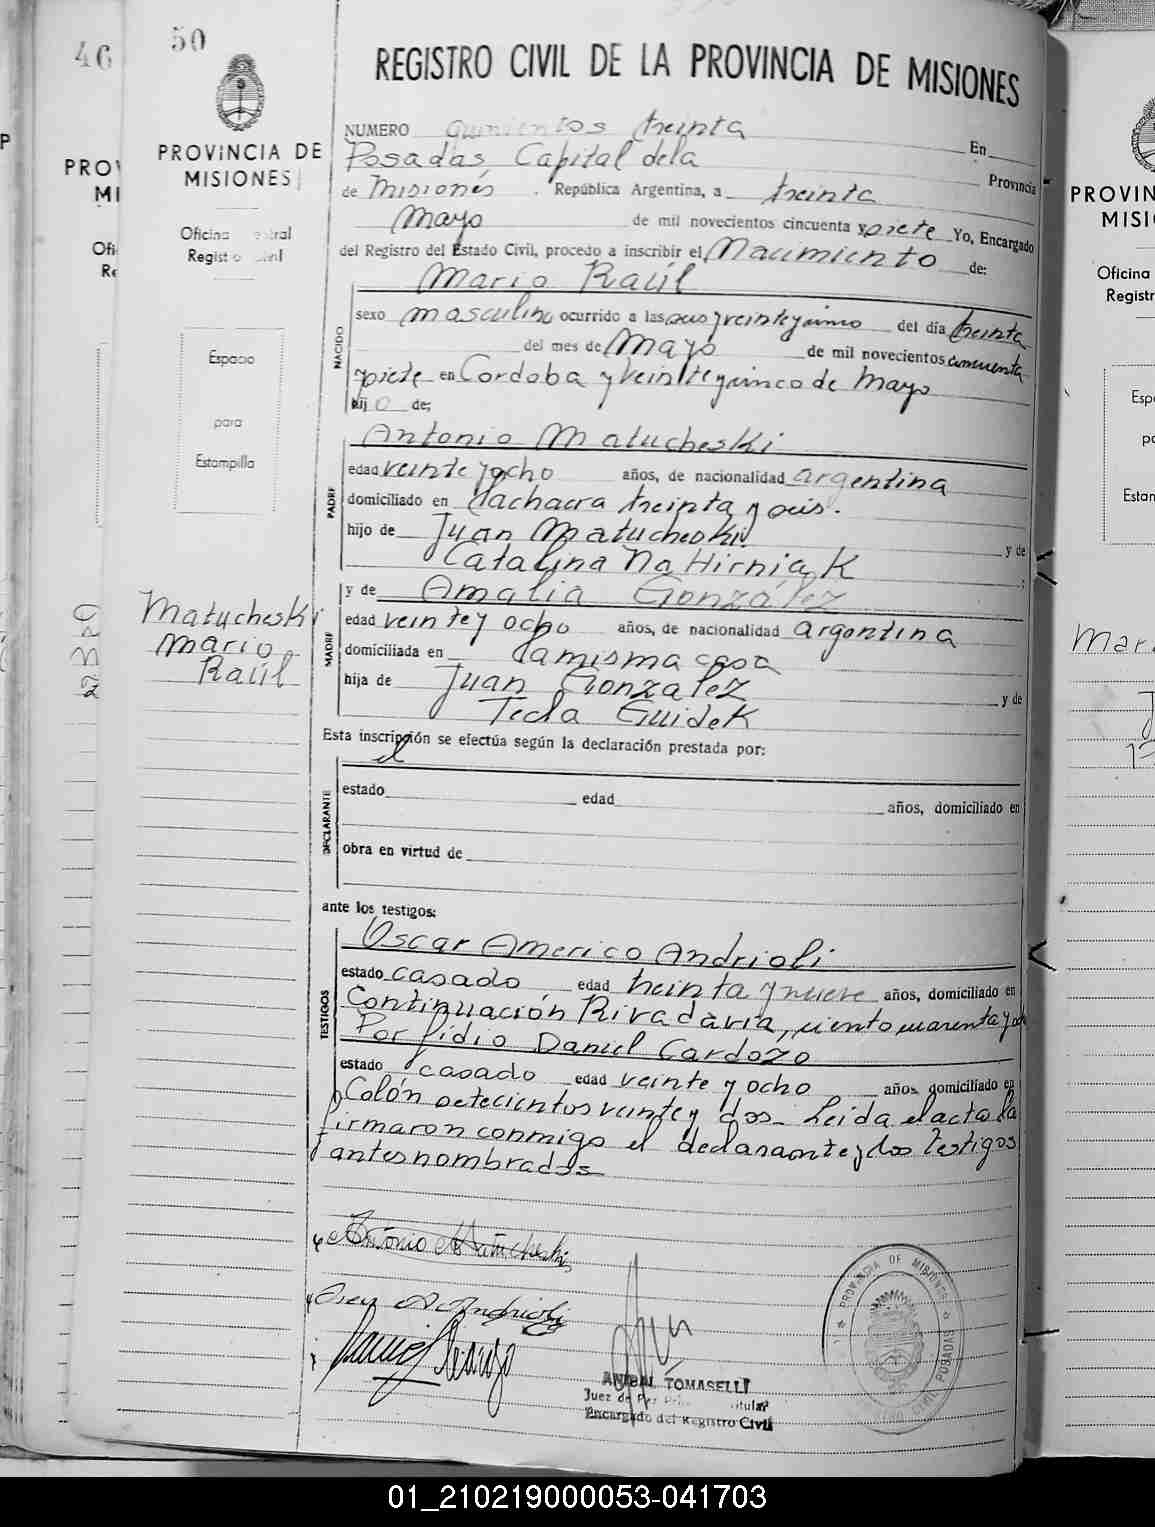 46
50
PROVINCIA DE
MISIONES
Oficina Central
Registro Civil
Espacio
para
Estampilla
Matucheski
Mario
Raúl
REGISTRO CIVIL DE LA PROVINCIA DE MISIONES
NUMERO quinientos treinta En
Posadas Capital de la Provincia
de Misiones . República Argentina, a treinta
Mayo de mil novecientos cincuenta y siete Yo, Encargado
del Registro del Estado Civil, procedo a inscribir el Nacimiento de:
Mario Raúl
NACIDO
sexo masculino ocurrido a las seis y veinte y cinco del día treinta
del mes de Mayo de mil novecientos cincuenta
y siete en Cordoba y veinte y cinco de Mayo
hijo de;
PADRE
Antonio Matucheski
edad veinte y ocho años, de nacionalidad argentina
domiciliado en Chacra treinta y seis.
hijo de Juan Matucheski y de
Catalina Na Hirniak ;
MADRE
y de Amalia González
edad veinte y ocho años, de nacionalidad argentina
domiciliada en la misma casa
hija de Juan González y de
Tecla Guidek
Esta inscripción se efectúa según la declaración prestada por:
DECLARANTE
el
estado edad años, domiciliado en
obra en virtud de
ante los testigos:
TESTIGOS
Oscar Americo Andrioli
estado casado edad treinta y nueve años, domiciliado en
Continuación Rivadavia, ciento cuarenta y
Porfidio Daniel Cardozo
estado casado edad veinte y ocho años domiciliado en
Colón setecientos veinte y dos_ Leida el acta la
firmaron conmigo el declarante y los testigos
antes nombrados
Antonio Matucheski
ANIBAL TOMASELLI
Juez de Paz titular
Encargado del Registro Civil
PROVINCIA DE MISIONES
POSADAS
PROV
MI
Ofi
Re
PROVIN
MISI
Oficina
Registr
Espe
pa
Estan
Mar
01_210219000053-041703